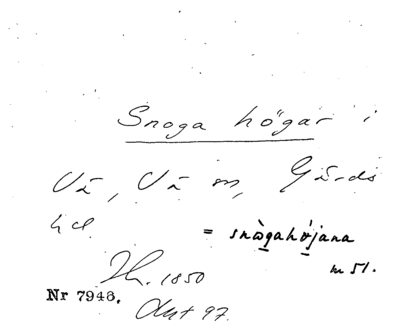 Snoga högar i
Vä, Vä sn, Gärds
hd.
= snògahǿjana
Th. 1850
m 51.
Nr 7946.
Avt 97.